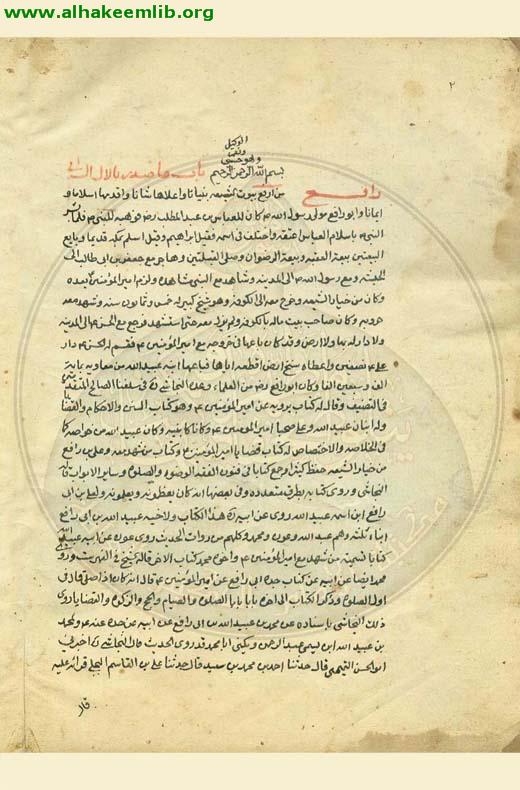 www.alhakeemlib.org
٢
الوكيل
ونعم
وهو حسبي
بسم الله الرحمن الرحيم
باب ما صدر بالال
رافع
من ارفع بيوت الشيعه بنيانا واعلاها شانا واقدمها اسلاما و
ايمانا وابو رافع مولى رسول الله ص كان للعباس بن عبد المطلب رض فوهبه للنبي ص فلما بشر
النبي ص باسلام العباس اعتقه واختلف في اسمه فقيل ابراهيم وقيل اسلم بمكه قديما وبايع
البيعتين بيعة العقبه وبيعة الرضوان وصلى القبلتين وهاجر مع جعفر بن ابي طالب الى
الحبشه ومع رسول الله ص الى المدينه وشاهد مع النبي مشاهده ولزم امير المؤمنين ع بعده
وكان من خيار الشيعه وخرج معه الى الكوفه وهو شيخ كبير له خمس وثمانون سنه وشهد معه
حروبه وكان صاحب بيت ماله بالكوفه ولم يزل معه حتى استشهد فرجع مع الحسن ع الى المدينه
ولا دار له بها ولا ارض وقد كان باعها في خروجه مع امير المؤمنين ع فقسم له الحسن ع دار
علي ع نصفين واعطاه سنح ارض اقطعه اياها فباعها ابنه عبيد الله من معاويه بماية
الف وسبعين الفا وكان ابو رافع رض من العلماء وعده النجاشي في سلفنا الصالح المتقدمين
في التصنيف وقال له كتاب يرويه عن امير المؤمنين ع وهو كتاب السنن والاحكام والقضايا
وله ابنان عبيد الله وعلي صحبا امير المؤمنين ع وكانا كاتبيه وكان عبيد الله من خواصه كما
في الخلاصه والاختصاص له كتاب قضايا امير المؤمنين ع وكتاب من شهد معه وعلي بن رافع
من خيار الشيعه حفظ كثيرا وجمع كتابا في فنون الفقه الوضوء والصلوة وساير الابواب قاله
النجاشي وروى كتابه بطرق متعدده وفي بعضها انه كان يعظمونه ويعلمونه ولعلي بن ابي
رافع ابن اسمه عبيد الله روى عن ابيه هذا الكتاب ولاخيه عبيد الله بن ابي رافع
ابناء ثلثه وهم عبد الله وعون ومحمد وكلهم من روات الحديث روى عون عن ابيه عبيد الله
كتابا تسمية من شهد مع امير المؤمنين ع واخوه محمد كتاب الاخر قاله الشيخ في الفهرست وروى
محمد ايضا عن ابيه عن كتاب جده ابي رافع عن امير المؤمنين ع قال انه كان اذا صلى قال في
اول الصلوة وذكر الكتاب الى اخره بابا بابا الصلوة والصيام والحج والزكوة والقضايا روى
ذلك النجاشي باسناده عن محمد بن عبيد الله بن ابي رافع عن ابيه عن جده عنه ع ولمحمد
بن عبيد الله ابن يسمى عبد الرحمن ويكنى ابا محمد قد روى الحديث قال النجاشي اخبرني
ابو الحسن التميمي قال حدثنا احمد بن محمد بن سعيد قال حدثنا علي بن القاسم البجلي قرائه عليه
قال